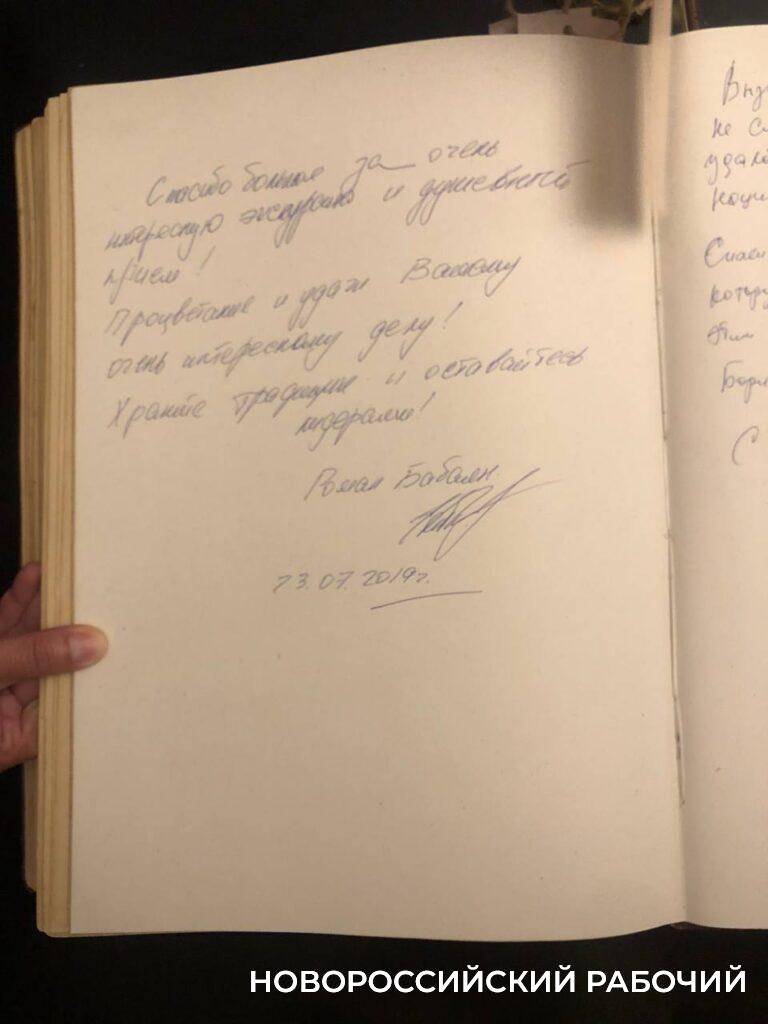 Спасибо большое за очень
интересную экскурсию и душевный
приём!
Процветание и удачи Вашему
очень интересному делу!
Храните традиции и оставайтесь
лидерами!
Роман Бабаян.
23.07.2019г.
не с
удало
Спаси
котор
С
НОВОРОССИЙСКИЙ РАБОЧИЙ